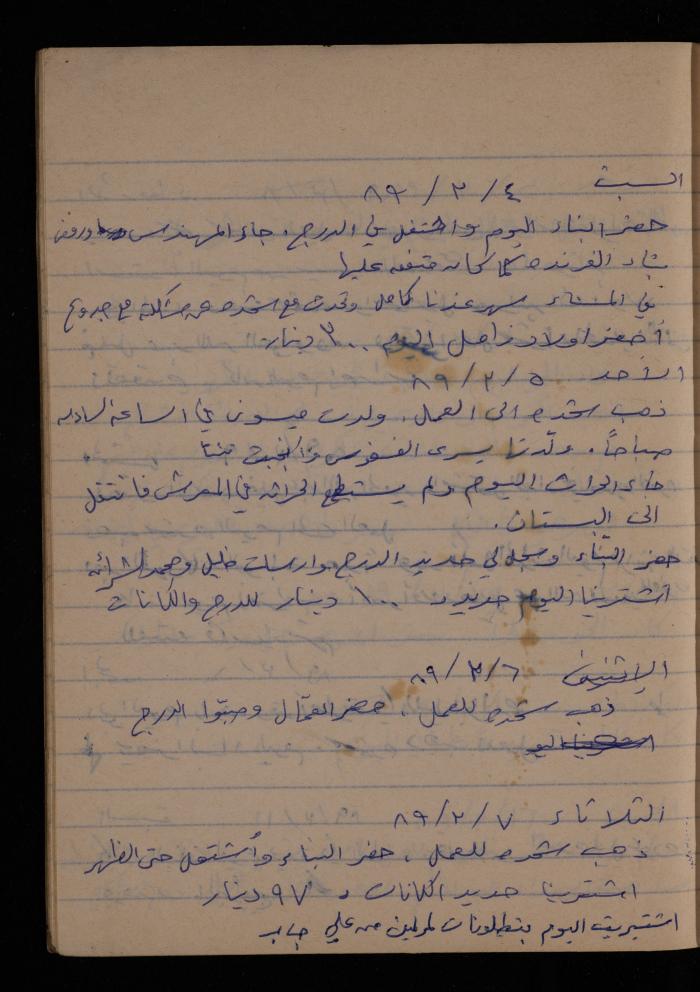 السبت ٤ / ٢ / ٨٩
حضر البناء اليوم واشتغل في الدرج. جاء المهندس ورفض
بناء الفرنده كما كان متفق عليها
في المساء سهر عندنا كامل وتحدث مع شحده عن مشكلة مع
أحضر اولاد زامل اليوم ٣٠٠ دينار
الأحد ٥ / ٢ / ٨٩
ذهب شحده الى العمل. ولدت ميسون في الساعة السادسة
صباحاً. ولّدتها يسرى وانجبت بنتا
جاء الحراث اليوم ولم يستطع الحراثه في المعرش فانتقل
الى البستان.
حضر البنّاء وسجل لي حديد الدرج وارسلت خليل ومحمد لشرائه
اشترينا اليوم حديد بـ ١٠٠ دينار للدرج والكانات
الإثنين ٦ / ٢ / ٨٩
ذهب شحده للعمل. حضر العمّال وصبّوا الدرج
الثلاثاء ٧ / ٢ / ٨٩
ذهب شحده للعمل. حضر البناء وأشتغل حتى الظهر
اشترينا حديد الكانات بـ ٩٧ دينار
اشتريت اليوم بنطلونات من علي جابر